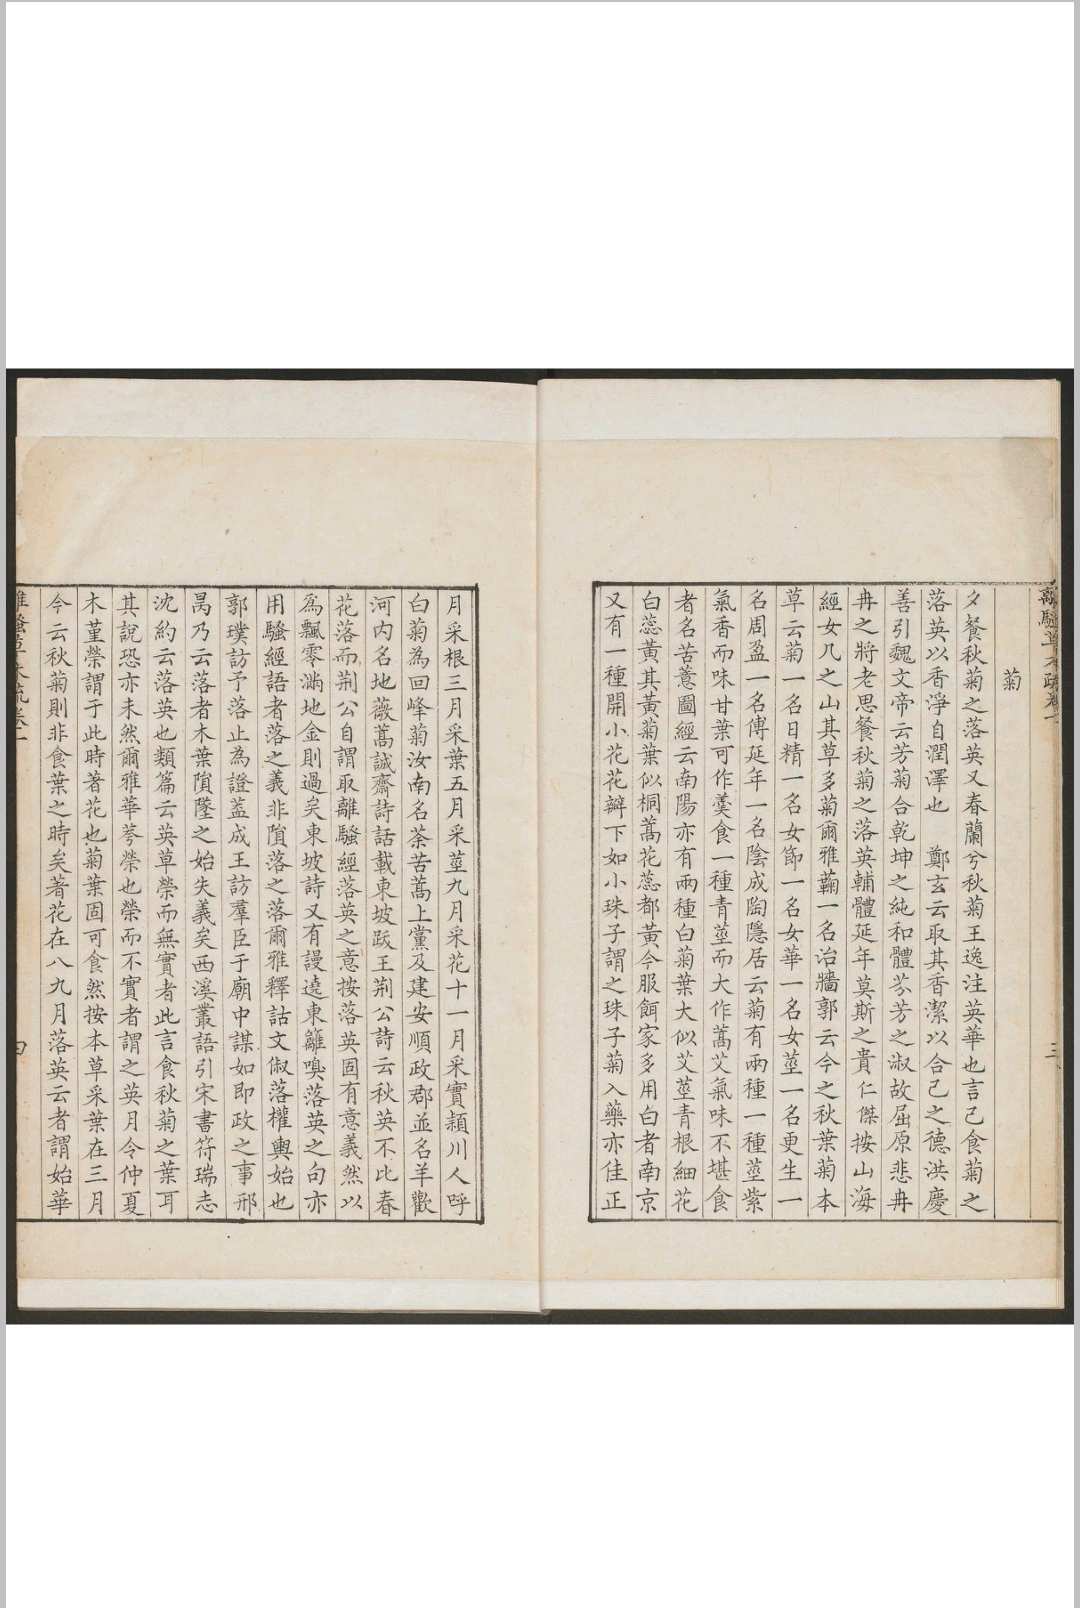 離騷草木疏卷一
三
菊
夕餐秋菊之落英又春蘭兮秋菊王逸注英華也言己食菊之
落英以香淨自潤澤也　鄭玄云取其香潔以合己之德洪慶
善引魏文帝云芳菊含乾坤之純和體芬芳之淑故屈原悲冉
冉之將老思餐秋菊之落英輔體延年莫斯之貴仁傑按山海
經女几之山其草多菊爾雅蘜一名治牆郭云今之秋葉菊本
草云菊一名日精一名女節一名女華一名女莖一名更生一
名周盈一名傅延年一名陰成陶隱居云菊有兩種一種莖紫
氣香而味甘葉可作羹食一種青莖而大作蒿艾氣味不堪食
者名苦薏圖經云南陽亦有兩種白菊葉大似艾莖青根細花
白蕊黃其黃菊葉似桐蒿花蕊都黃今服餌家多用白者南京
又有一種開小花花瓣下如小珠子謂之珠子菊入藥亦佳正
月采根三月采葉五月采莖九月采花十一月采實潁川人呼
白菊為回峰菊汝南名荼苦蒿上黨及建安順政郡並名羊歡
河內名地薇蒿誠齋詩話載東坡跋王荊公詩云秋英不比春
花落而荊公自謂取離騷經落英之意按落英固有意義然以
爲飄零滿地金則過矣東坡詩又有謾遶東籬嗅落英之句亦
用騷經語者落之義非隕落之落爾雅釋詁文俶落權輿始也
郭璞訪予落止為證蓋成王訪羣臣于廟中謀如即政之事邢
昺乃云落者木葉隕墜之始失義矣西溪叢語引宋書符瑞志
沈約云落英也類篇云英草榮而無實者此言食秋菊之葉耳
其說恐亦未然爾雅華荂榮也榮而不實者謂之英月令仲夏
木堇榮謂于此時著花也菊葉固可食然按本草采葉在三月
今云秋菊則非食葉之時矣著花在八九月落英云者謂始華
離騷草木疏卷一
四